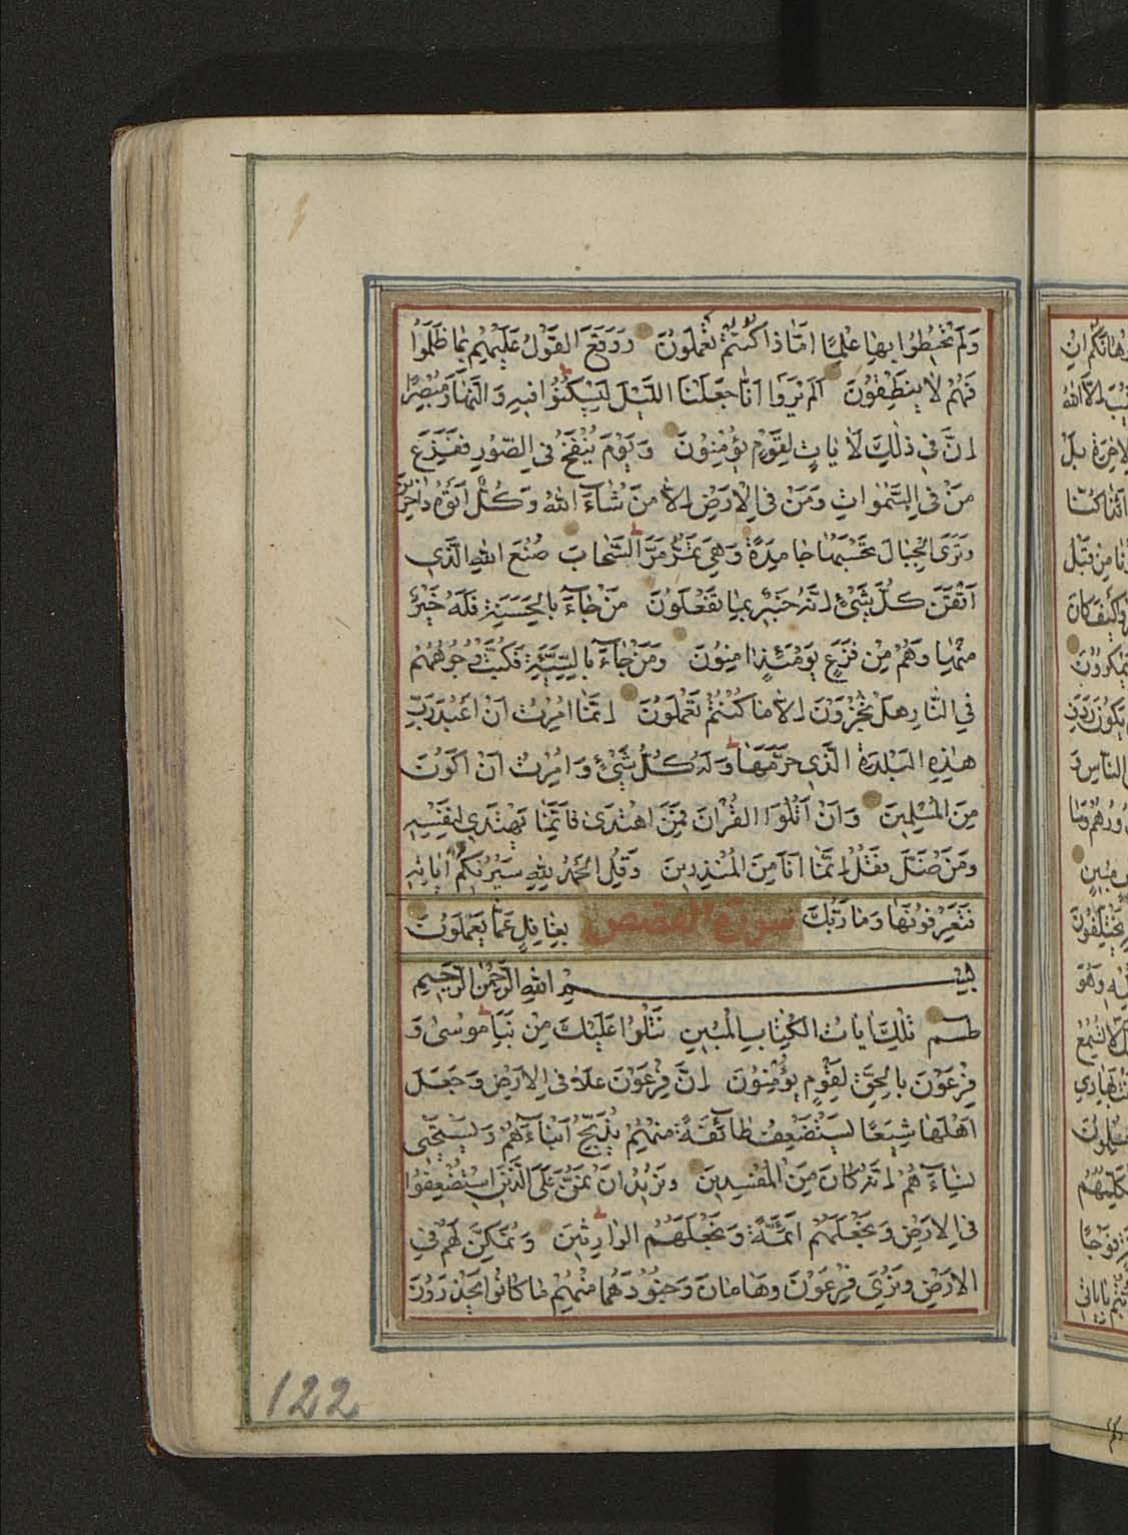 وَلَمْ تُحِيطُوا بِهَا عِلْمًا اَمَّا ذَا كُنْتُمْ تَعْمَلُونَ وَوَقَعَ الْقَوْلُ عَلَيْهِمْ بِمَا ظَلَمُوا
فَهُمْ لَا يَنْطِقُونَ اَلَمْ يَرَوْا اَنَّا جَعَلْنَا اللَّيْلَ لِيَسْكُنُوا فِيهِ وَالنَّهَارَ مُبْصِرًا
اِنَّ فِي ذٰلِكَ لَاٰيَاتٍ لِقَوْمٍ يُؤْمِنُونَ وَيَوْمَ يُنْفَخُ فِي الصُّورِ فَفَزِعَ
مَنْ فِي السَّمٰوَاتِ وَمَنْ فِي الْاَرْضِ اِلَّا مَنْ شَاءَ اللهُ وَكُلٌّ اَتَوْهُ دَاخِرِينَ
وَتَرَى الْجِبَالَ تَحْسَبُهَا جَامِدَةً وَهِيَ تَمُرُّ مَرَّ السَّحَابِ صُنْعَ اللهِ الَّذِي
اَتْقَنَ كُلَّ شَيْءٍ اِنَّهُ خَبِيرٌ بِمَا تَفْعَلُونَ مَنْ جَاءَ بِالْحَسَنَةِ فَلَهُ خَيْرٌ
مِنْهَا وَهُمْ مِنْ فَزَعٍ يَوْمَئِذٍ اٰمِنُونَ وَمَنْ جَاءَ بِالسَّيِّئَةِ فَكُبَّتْ وُجُوهُهُمْ
فِي النَّارِ هَلْ تُجْزَوْنَ اِلَّا مَا كُنْتُمْ تَعْمَلُونَ اِنَّمَا اُمِرْتُ اَنْ اَعْبُدَ رَبَّ
هٰذِهِ الْبَلْدَةِ الَّذِي حَرَّمَهَا وَلَهُ كُلُّ شَيْءٍ وَاُمِرْتُ اَنْ اَكُونَ
مِنَ الْمُسْلِمِينَ وَاَنْ اَتْلُوَا الْقُرْاٰنَ فَمَنِ اهْتَدٰى فَاِنَّمَا يَهْتَدِي لِنَفْسِهِ
وَمَنْ ضَلَّ فَقُلْ اِنَّمَا اَنَا مِنَ الْمُنْذِرِينَ وَقُلِ الْحَمْدُ لِلّٰهِ سَيُرِيكُمْ اٰيَاتِهِ
فَتَعْرِفُونَهَا وَمَا رَبُّكَ سورة القصص بِغَافِلٍ عَمَّا يَعْمَلُونَ
بِسْمِ اللهِ الرَّحْمٰنِ الرَّحِيمِ
طسم تِلْكَ اٰيَاتُ الْكِتَابِ الْمُبِينِ نَتْلُوا عَلَيْكَ مِنْ نَبَاِ مُوسٰى وَ
فِرْعَوْنَ بِالْحَقِّ لِقَوْمٍ يُؤْمِنُونَ اِنَّ فِرْعَوْنَ عَلَا فِي الْاَرْضِ وَجَعَلَ
اَهْلَهَا شِيَعًا يَسْتَضْعِفُ طَائِفَةً مِنْهُمْ يُذَبِّحُ اَبْنَاءَهُمْ وَيَسْتَحْيِي
نِسَاءَهُمْ اِنَّهُ كَانَ مِنَ الْمُفْسِدِينَ وَنُرِيدُ اَنْ نَمُنَّ عَلَى الَّذِينَ اسْتُضْعِفُوا
فِي الْاَرْضِ وَنَجْعَلَهُمْ اَئِمَّةً وَنَجْعَلَهُمُ الْوَارِثِينَ وَنُمَكِّنَ لَهُمْ فِي
الْاَرْضِ وَنُرِيَ فِرْعَوْنَ وَهَامَانَ وَجُنُودَهُمَا مِنْهُمْ مَا كَانُوا يَحْذَرُونَ
122